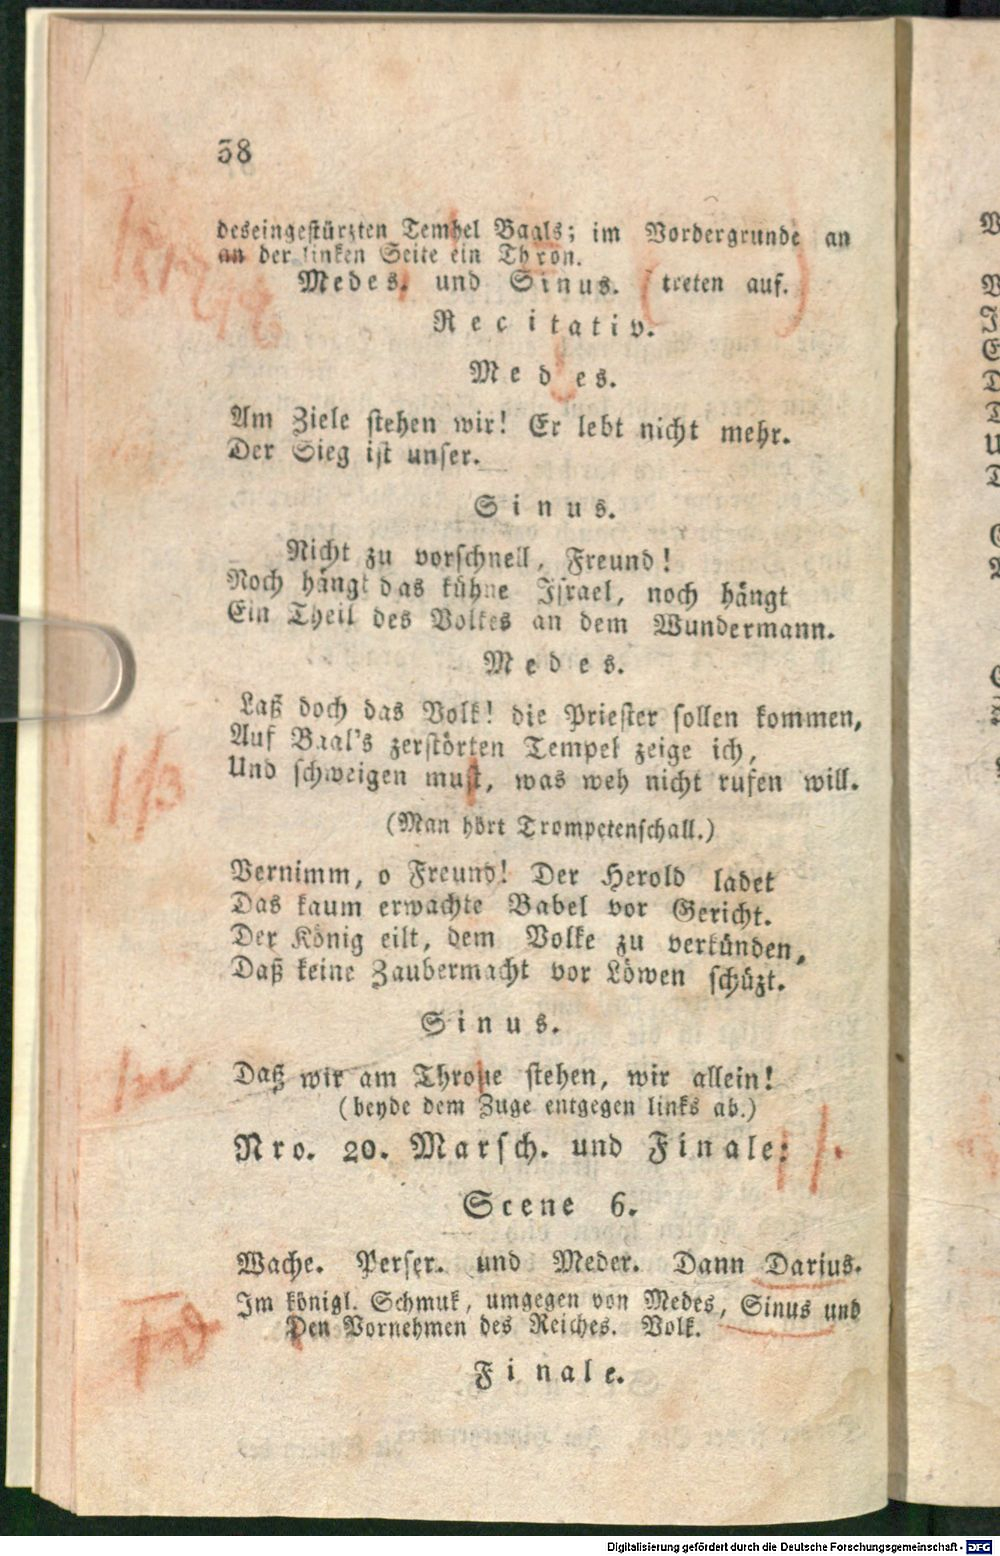 38
deseingestürzten Tembel Baals; im Vordergrunde an
an der linken Seite ein Thron.
Medes. und Sinus. (treten auf.)
Recitativ.
Medes.
Am Ziele stehen wir! Er lebt nicht mehr.
Der Sieg ist unser.
Sinus.
Nicht zu vorschnell, Freund!
Noch hängt das kühne Israel, noch hängt
Ein Theil des Volkes an dem Wundermann.
Medes.
Laß doch das Volk! die Priester sollen kommen,
Auf Baal's zerstörten Tempel zeige ich,
Und schweigen must, was weh nicht rufen will.
(Man hört Trompetenschall.)
Vernimm, o Freund! Der Herold ladet
Das kaum erwachte Babel vor Gericht.
Der König eilt, dem Volke zu verkünden,
Daß keine Zaubermacht vor Löwen schüzt.
Sinus.
Daß wir am Throne stehen, wir allein!
(beyde dem Zuge entgegen links ab.)
Nro. 20. Marsch. und Finale:
Scene 6.
Wache. Perser. und Meder. Dann Darius.
Im königl. Schmuk, umgegen von Medes, Sinus und
Den Vornehmen des Reiches. Volk.
Finale.
Digitalisierung gefördert durch die Deutsche Forschungsgemeinschaft - DFG